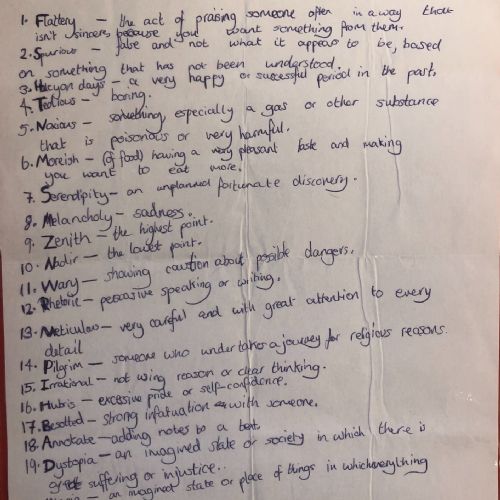 1. Flattery – the act of praising someone often in a way that
isn't sincere, because you want something from them.
2. Spurious – false and not what it appears to be, based
on something that has not been understood.
3. Halcyon days – a very happy or successful period in the past.
4. Tedious – boring.
5. Noxious – something, especially a gas or other substance
that is poisonous or very harmful.
6. Moreish – (of food) having a very pleasant taste and making
you want to eat more.
7. Serendipity – an unplanned fortunate discovery.
8. Melancholy – sadness.
9. Zenith – the highest point.
10. Nadir – the lowest point.
11. Wary – showing caution about possible dangers.
12. Rhetoric – persuasive speaking or writing.
13. Meticulous – very careful and with great attention to every
detail
14. Pilgrim – someone who undertakes a journey for religious reasons.
15. Irrational – not using reason or clear thinking.
16. Hubris – excessive pride or self-confidence.
17. Besotted – strong infatuation with someone.
18. Annotate – adding notes to a text.
19. Dystopia – an imagined state or society in which there is
great suffering or injustice..
– an imagined state or place of things in which everything